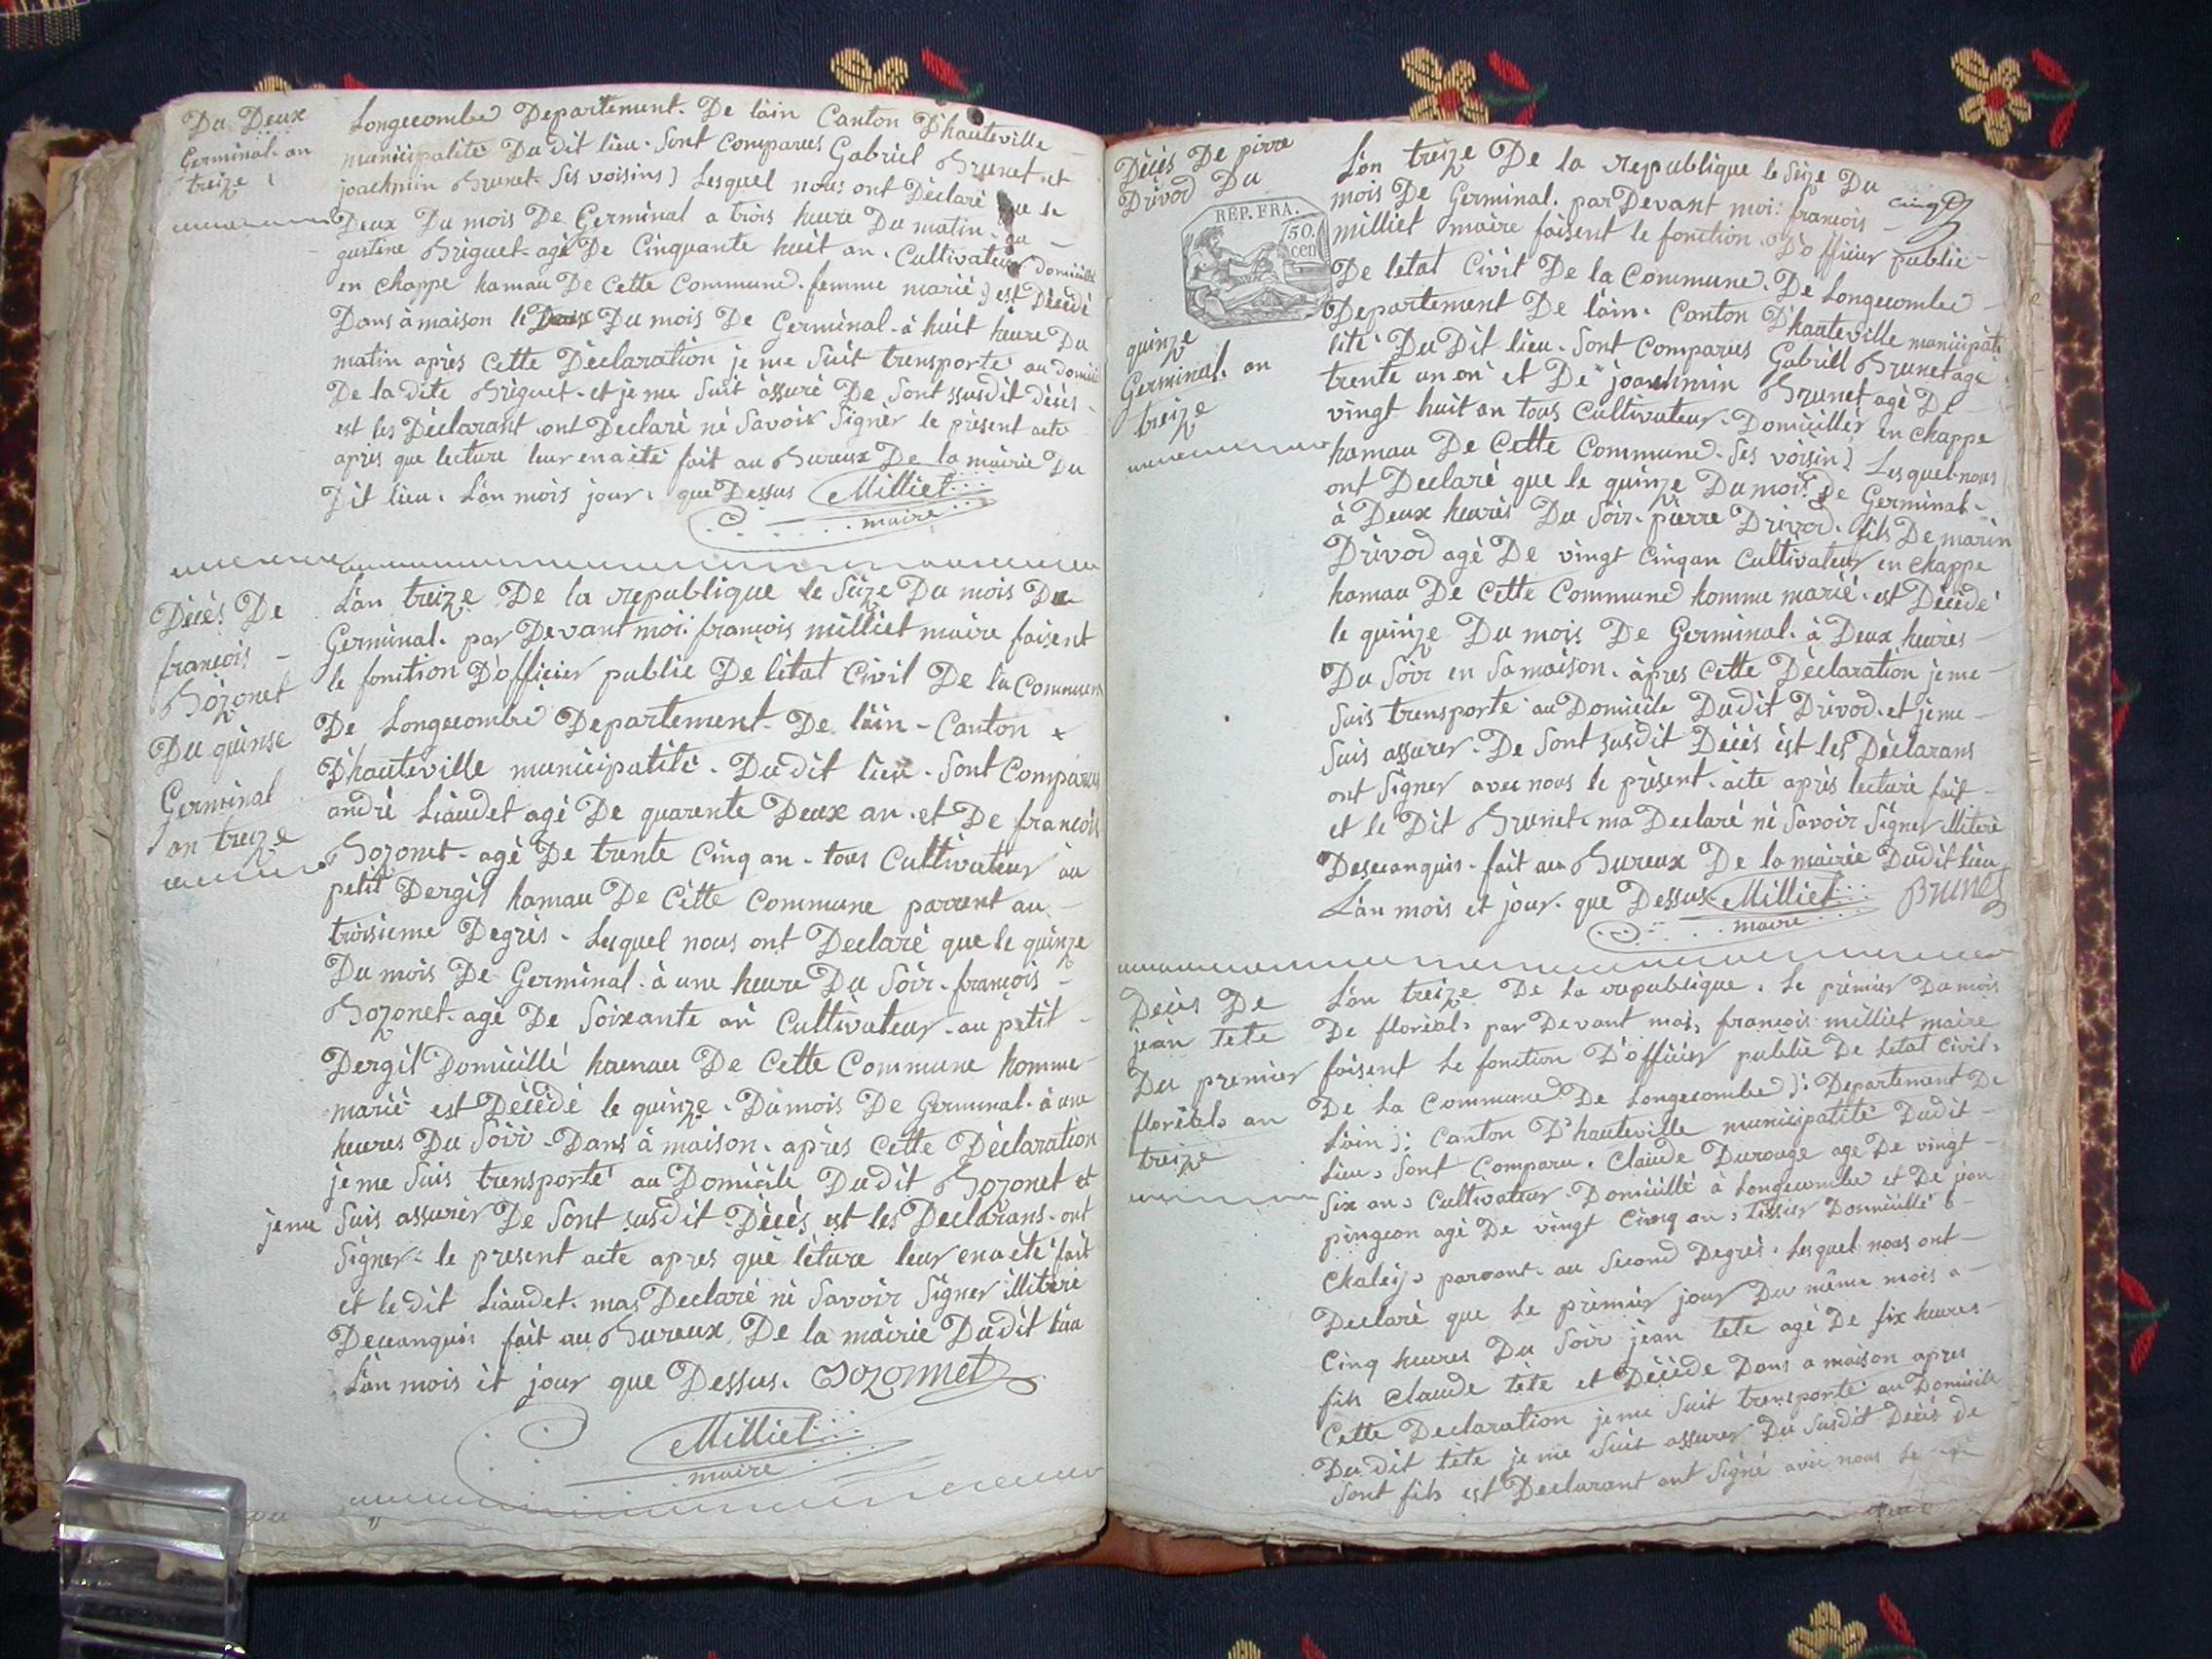 Du Deux
Germinal. an
treize
Longecombe Departement. De lain Canton D'hauteville
municipalité Du dit lieu. Sont Comparus Gabriel Brunet et
joachmin Brunet. Ses voisins) Lesquel nous ont Déclaré que le
Deux Du mois De Germinal a trois heure Du matin. au
gustine Briguet. agé De Cinquante huit an. Cultivateur domicillié
en Chappe hamau De Cette Commune. femme marié) est Décédé
Dans à maison le Deux Du mois De Germinal. à huit heure Du
matin après Cette Déclaration je me Suit trensporté au domici
De la dite Briguet. et je me Suit assuré De Sont ssusdit décès
est les Déclarant ont Declaré né Savoir Signér le présent acte
apres que lecture leur en a été fait au Bureux De la mairie Du
Dit lieu. L'an mois jour. que Dessus Milliet
maire
Décès De
françois -
Bozonet
Du quinse
Germinal
an treize
L'an treize De la republique le Seize Du mois De
Germinal. par Devant moi: françois milliet maire faisent
le fonction D'officier public De létat Civil De la Commune
De Longecombe Departement De lain - Canton x
D'hauteville municipalité. Dudit lieu. Sont Comparus
andré Liaudet agé De quarente Deux an. et De françois
Bozonet. agé De trente Cinq an. tous Cultivateur au
petit Dergit hamau De Cette Commune parrent au -
troisieme Degrés. Lesquel nous ont Declaré que le quinze
Du mois De Germinal. à une heure Du Soir. françois -
Bozonet. agé De Soixante an Cultivateur. au petit -
Dergit Domicillé hamau De Cette Commune homme
marié est Décédé le quinze. Du mois De Germinal. à une
heures Du Soir. Dans à maison. après Cette Déclaration
je me Suis trensporté au Domicile Dudit Bozonet et
jeme Suis assurér De Sont susdit Décés est les Declarans. ont
Signer. le present acte apres que léture leur en a été fait
et le dit Liaudet. mas Declaré né Savoir Signer illiteré
Deceanquis fait au Bureux De la mairie Dudit lieu
L'an mois èt jour que Dessus. Bozonnet
Milliet
maire
Décès De pirre
Drivod Du
REP. FRA.
50.
cen
quinze
Germinal. an
treize
cinq
L'an treize De la republique le Seize Du
mois De Germinal. par Devant moi: françois -
milliet maire faisent le fonction D'officier public -
De letat Civil De la Commune. De Longecombe -
Departement De lain. Canton D'hauteville municipali
lité Du Dit lieu. Sont Comparus Gabriel Brunet agé
trente un an et De joachmin Brunet agé De -
vingt huit an tous Cultivateur. Domicillér en Chappe
hamau De Cette Commune. Ses voisin) Lesquel nous
ont Declaré que le quinze Du mois De Germinal.
à Deux heurés Du Soir. pierre Drivod. fils De marin
Drivod agé De vingt Cinq an Cultivateur en Chappe
hamau De Cette Commune homme marié. est Décédé
le quinze Du mois De Germinal. à Deux heures -
Du Soir en Sa maison. àpres Cette Déclaration je me -
Suis trensporté au Domicile Dudit Drivod. et je me -
Suis assurer. De Sont susdit Décés èst les Déclarans
ont Signer avec nous le present. acte après lecture fait -
et le Dit Brunet. ma Declaré né Savoir Signer illiteré
Deseanquis. fait au Bureux De la mairie Dudit lieu
L'an mois et jour. que Dessus. Milliet Brunet
maire
Decès De
jean tete
Du premier
floréal, an
treize
L'an treize De La republique. Le prémier Du mois
De floréal, par Devant moi, françois milliet maire
faisent Le fonction D'officier public De Létat Civil,
De La Commune De Longecombe): Departement De
Lain): Canton D'hauteville municipalité Dudit -
Lieu, Sont Comparu. Claude Durouge age De vingt -
Six an, Cultivateur. Domicillé à Longecombe et De jean
pingeon agé De vingt Cinq an, tissier Domicillé à -
Chaley, parrant. au Second Degrés. Lesquel nous ont -
Declaré que Le prémier jour Du même mois a -
Cinq heures Du Soir jean tete agé De six heures -
fils Claude tète et Décède Dans a maison apres
Cette Declaration je me Suit transporté au Domicile
Du dit tète je me Suit assurer Du Susdit Decès de
Sont fils est Declarant ont Signé avec nous Le